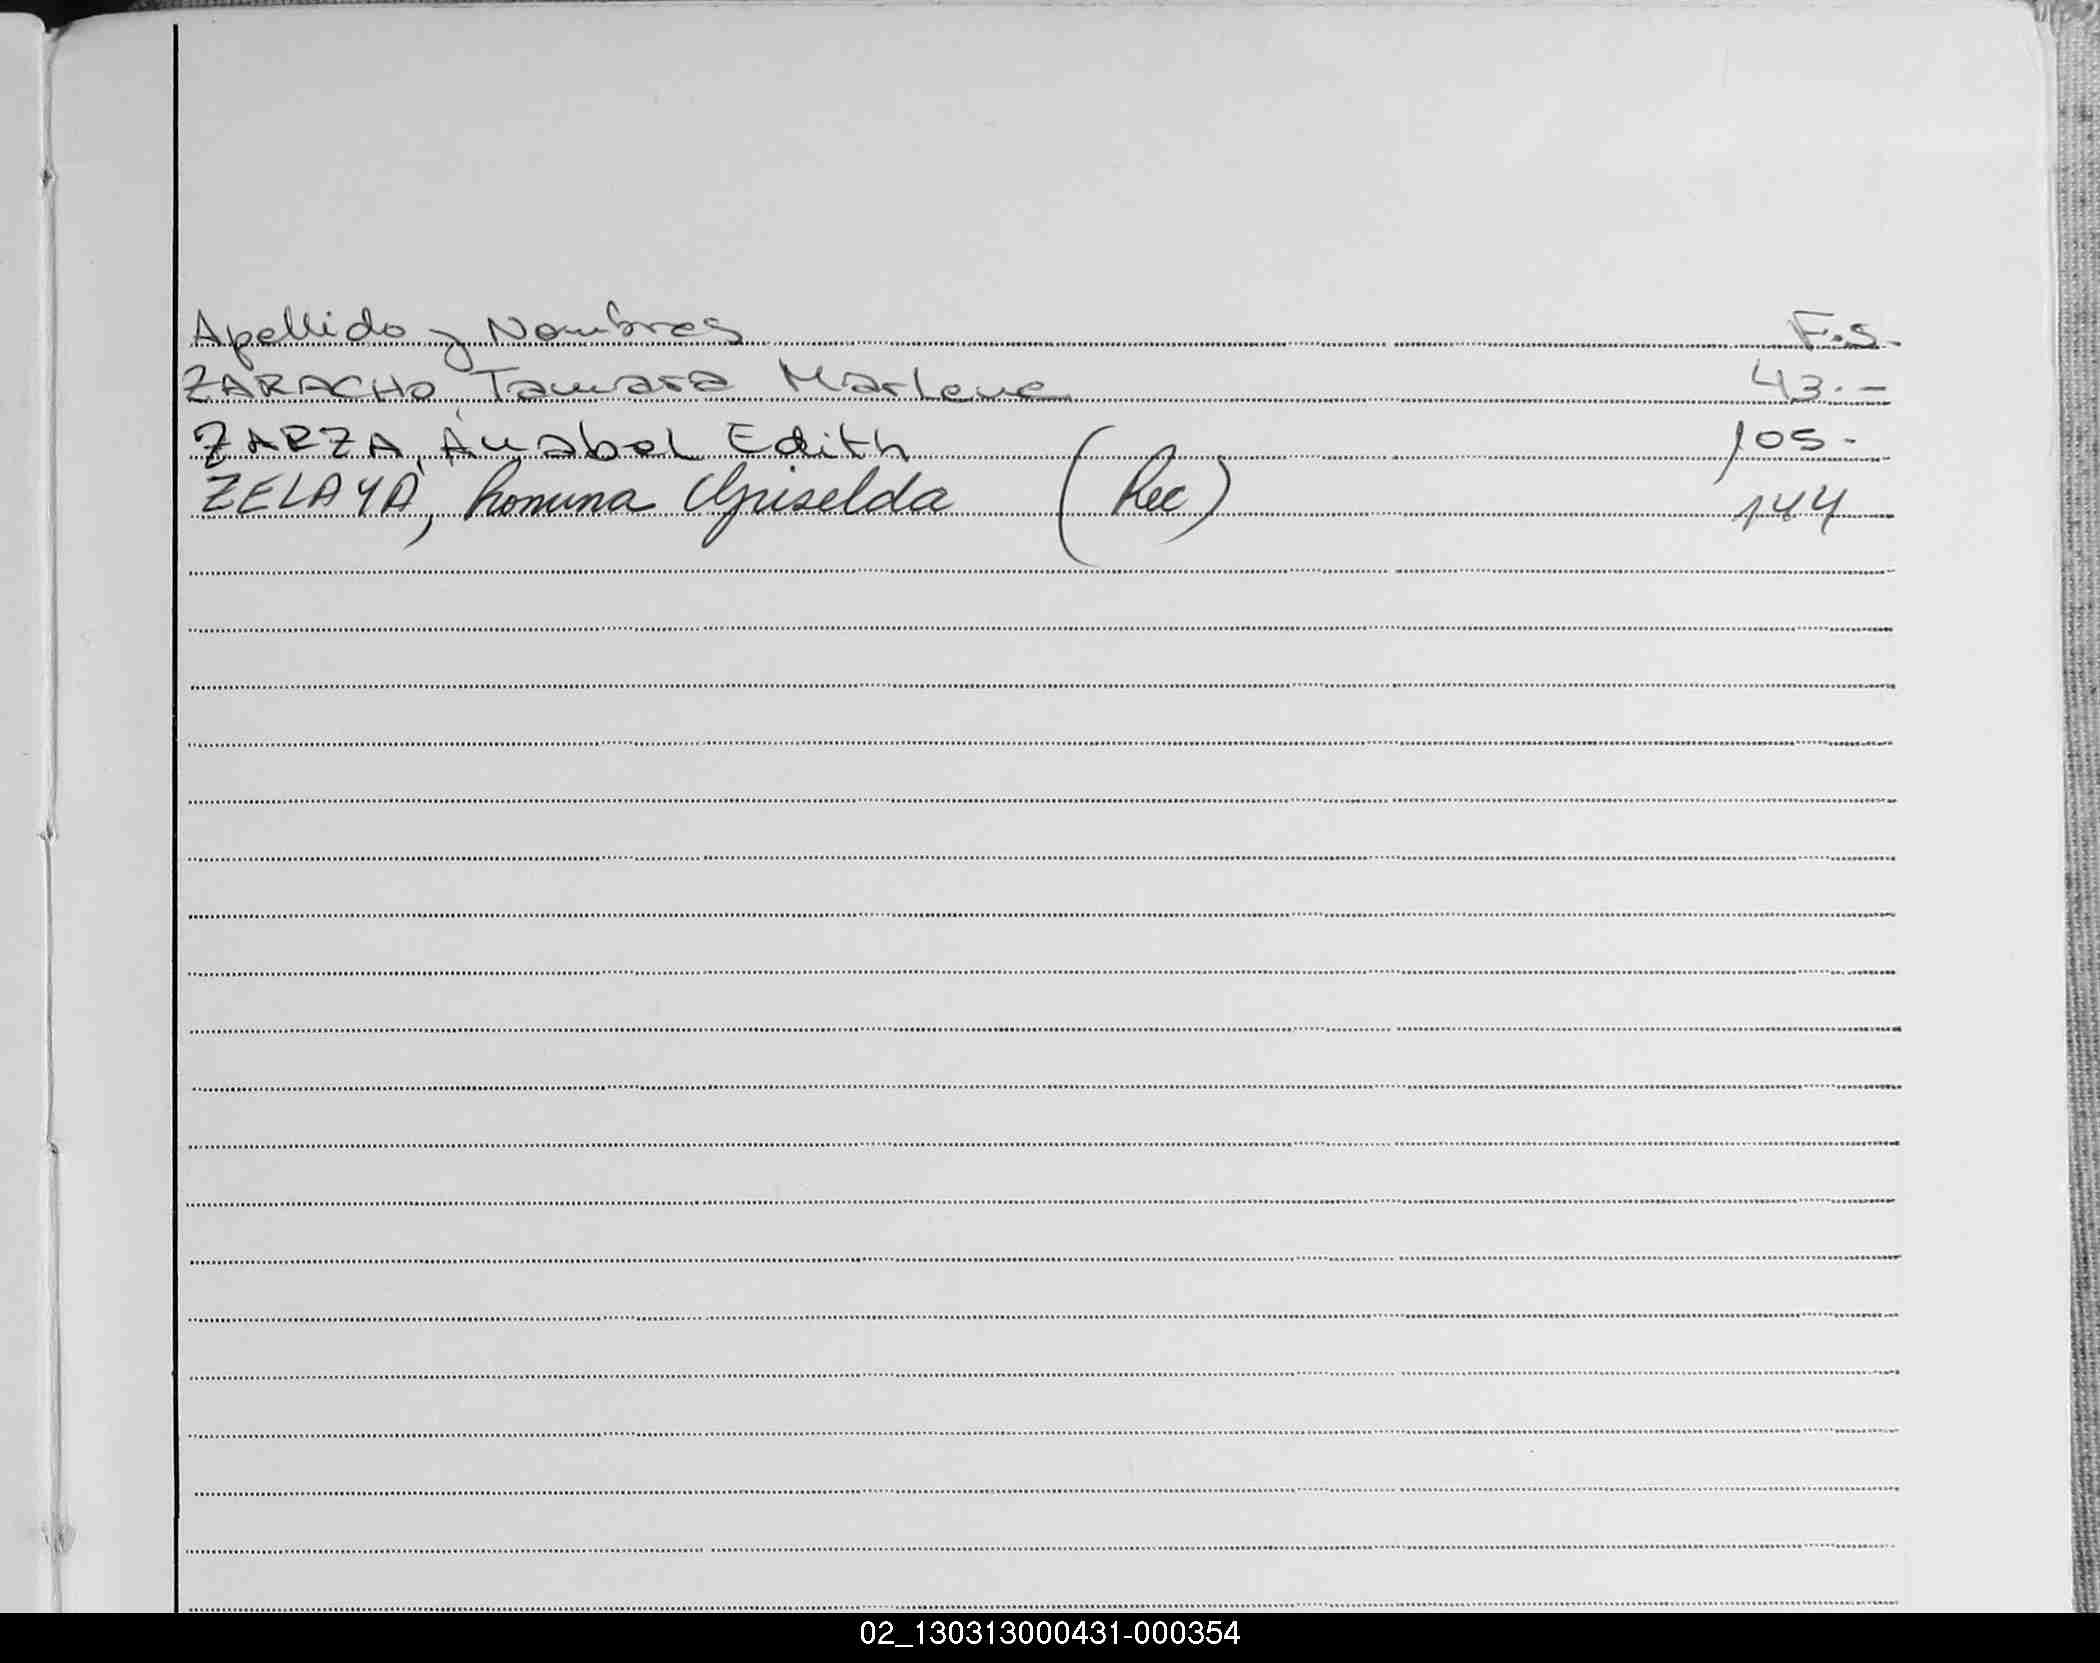 Apellido y Nombres F.S.
ZARACHO, Tamara Marlene 43.-
ZARZA, Anabel Edith 105.-
ZELAYA, Romina Griselda (Rec) 144
02_130313000431-000354